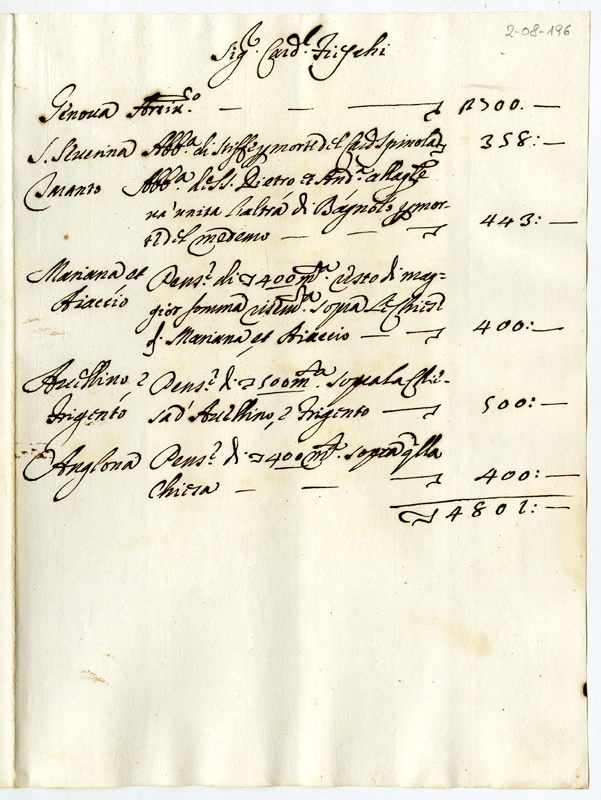 2-08-196
Sig.r Card.l Fieschi
Genova Arciv.to — — — 2700:—
S. Severina Abb.a di Stiffe p morte del Card Spinola 358:—
Taranto Abb.a de SS. Pietro et And.a all
va' unita l'altra di Bagnolo p mor-
te del medemo — — 443:—
Mariana et Pens.e di 400 m.ta resto di mag-
Aiaccio gior somma sopra le Chiese
di Mariana et Aiaccio — 400:—
Avellino, e Pens.e di 500 m.ta sopra la Chie-
Frigento sa d'Avellino, e Frigento — 500:—
Anglona Pens.e di 400 m.ta sopra qlla
Chiesa — — 400:—
4801:—